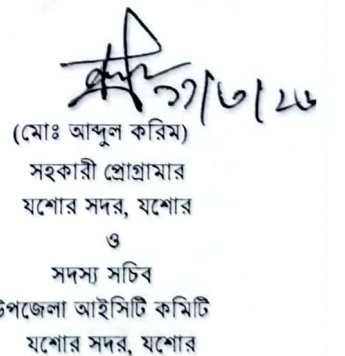 ১১/৩/২৬
(মোঃ আব্দুল করিম)
সহকারী প্রোগ্রামার
যশোর সদর, যশোর
ও
সদস্য সচিব
উপজেলা আইসিটি কমিটি
যশোর সদর, যশোর